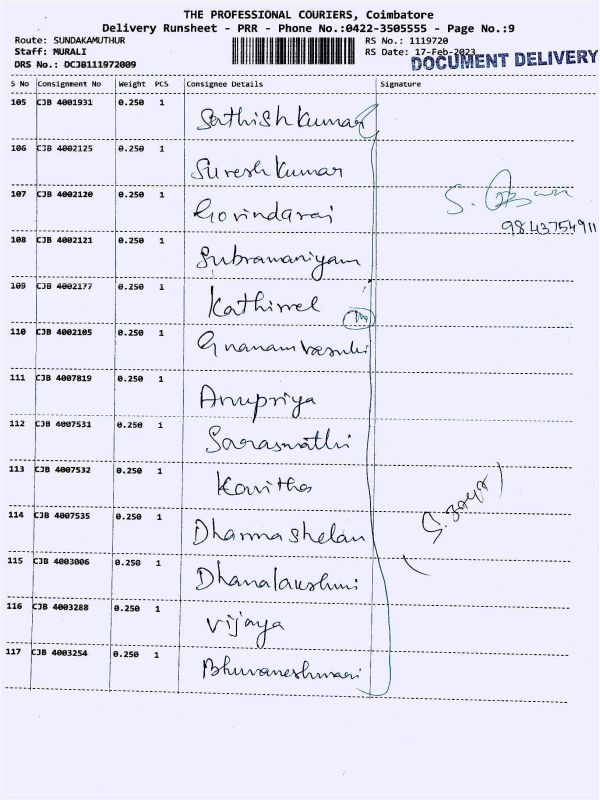 THE PROFESSIONAL COURIERS, Coimbatore
Delivery Runsheet - PRR - Phone No.:0422-3505555 - Page No.:9
Route: SUNDAKAMUTHUR RS No.: 1119720
Staff: MURALI RS Date: 17-Feb-2023
DRS No.: DCJB111972009 DOCUMENT DELIVERY
S No Consignment No Weight PCS Consignee Details Signature
105 CJB 4001931 0.250 1 Sathishkumar
106 CJB 4002125 0.250 1 Sureshkumar
107 CJB 4002120 0.250 1 Govindaraj
S.
9843754911
108 CJB 4002121 0.250 1 Subramaniyam
109 CJB 4002177 0.250 1 Kathirvel
110 CJB 4002105 0.250 1
111 CJB 4007819 0.250 1 Anupriya
112 CJB 4007531 0.250 1 Saraswathi
113 CJB 4007532 0.250 1 Kavitha
114 CJB 4007535 0.250 1
115 CJB 4003006 0.250 1 Dhanalakshmi
116 CJB 4003288 0.250 1 Vijaya
117 CJB 4003254 0.250 1 Bhuvaneshwari